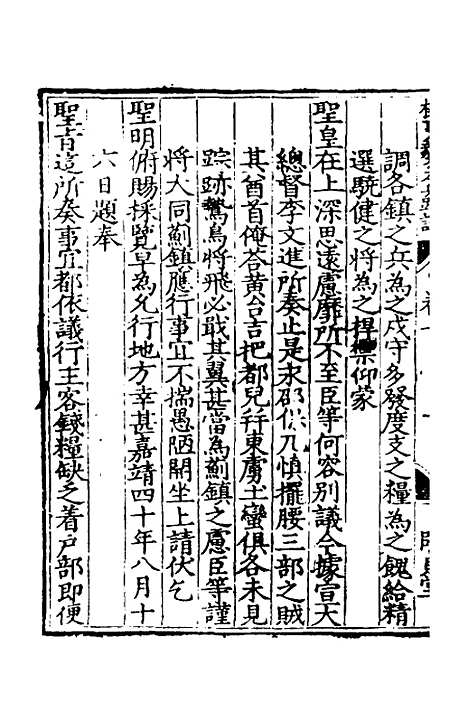 調各鎮之兵為之戍守多發度支之糧為之餽給精
選驍健之將為之捍禦仰蒙
聖皇在上深思遠慮靡所不至臣等何容別議今據宣大
總督李文進所奏止是求邵保乃慎擺腰三部之賊
其酋首俺荅黃台吉把都兒幷東虜土蠻俱各未見
踪跡鷙鳥將飛必戢其翼甚當為薊鎮之慮臣等謹
將大同薊鎮應行事宜不揣愚陋開坐上請伏乞
聖明俯賜採覽早為允行地方幸甚嘉靖四十年八月十
六日題奉
聖旨這所奏事宜都依議行主客錢糧缺乏着戶部即便